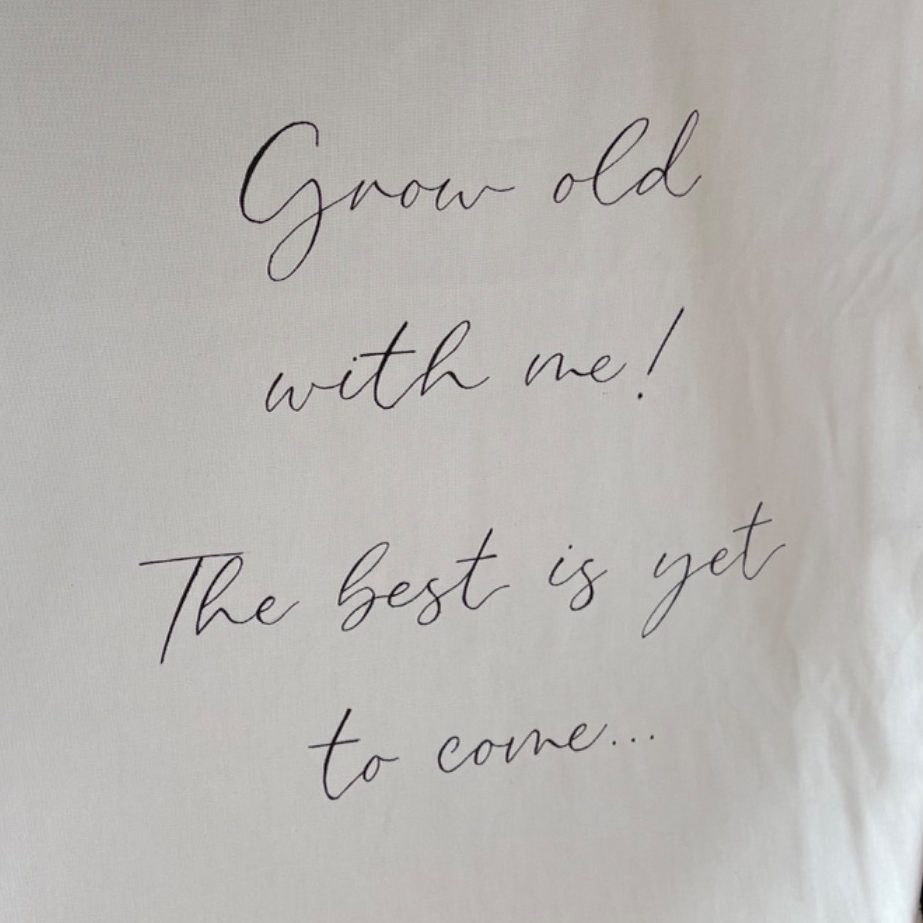 Grow old
with me!
The best is yet
to come...